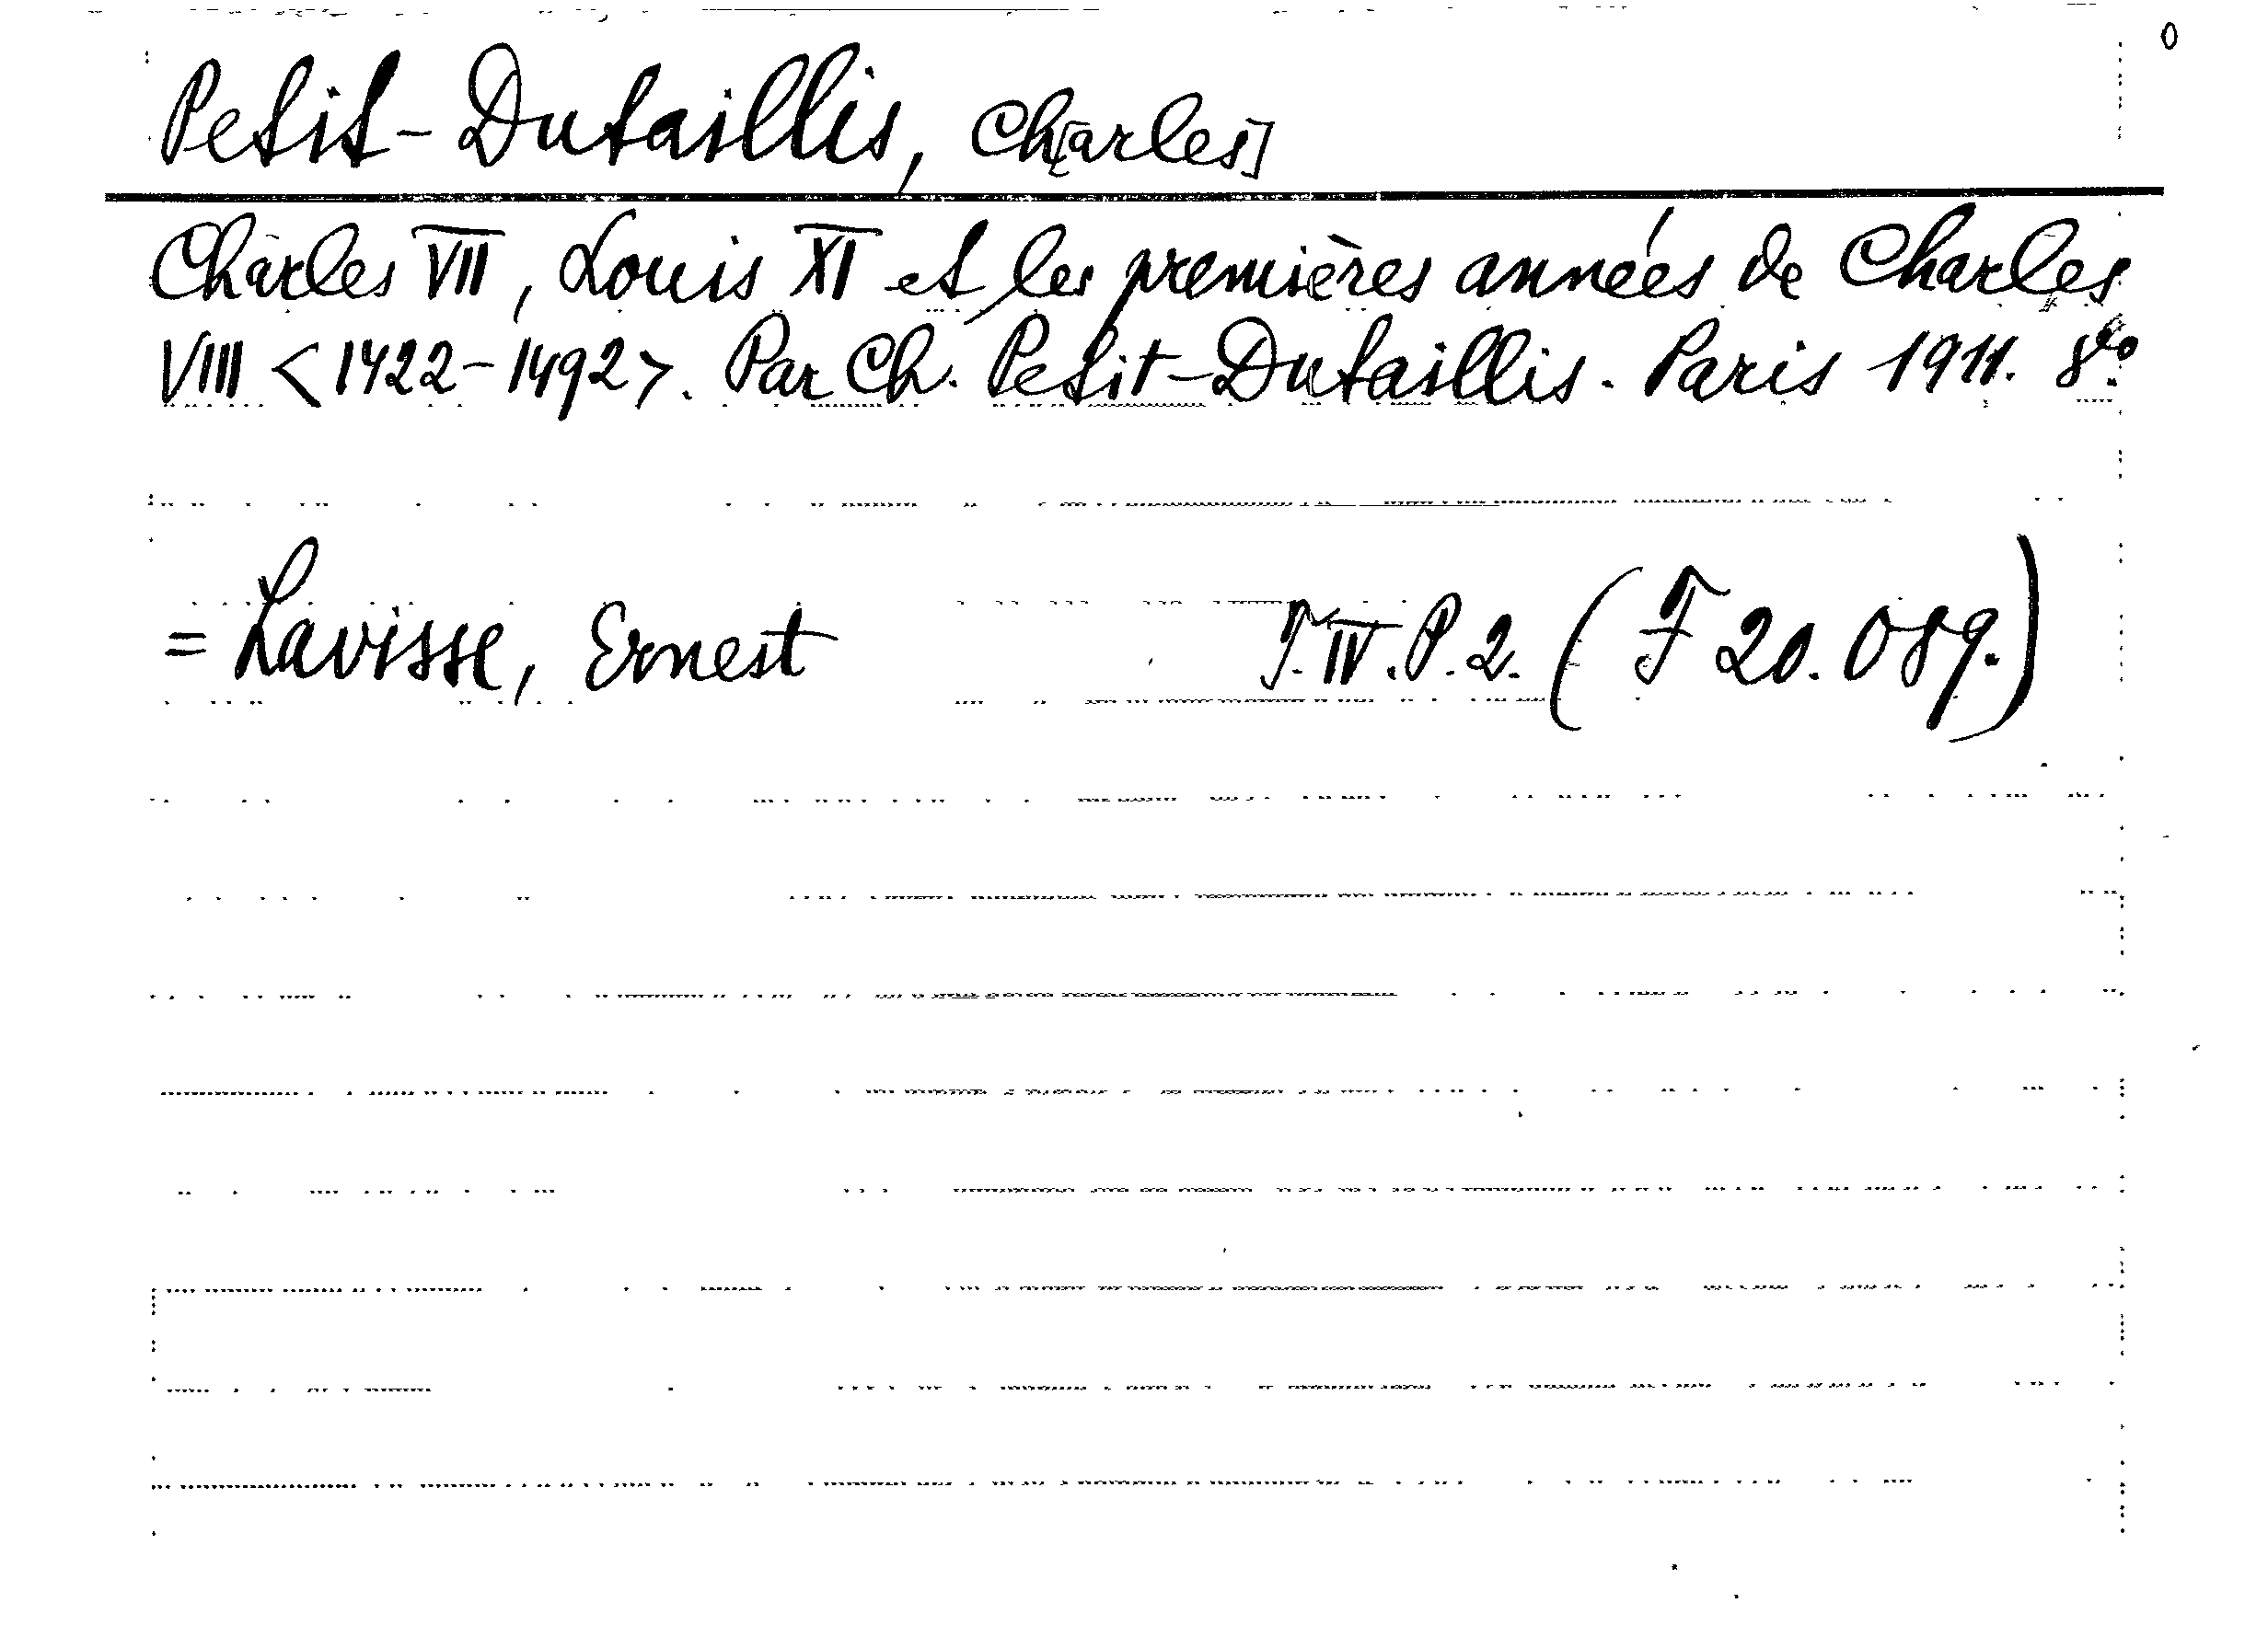 Petit-Dutaillis, Ch[arles]
Charles VII, Louis XI et les premières années de Charles
VIII <1422-1492>. Par Ch. Petit-Dutaillis. Paris 1911. 8vo.
= Lavisse, Ernest T. IV. P. 2. (F 20.089.)